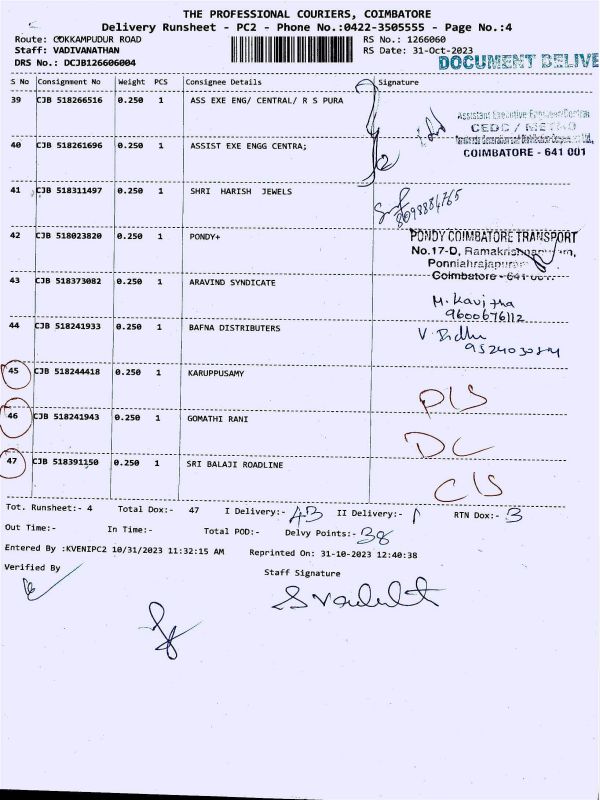 THE PROFESSIONAL COURIERS, COIMBATORE
Delivery Runsheet - PC2 - Phone No.:0422-3505555 - Page No.:4
Route: COKKAMPUDUR ROAD RS No.: 1266060
Staff: VADIVANATHAN RS Date: 31-Oct-2023
DRS No.: DCJB126606004 DOCUMENT DELIVE
S No Consignment No Weight PCS Consignee Details Signature
39 CJB 518266516 0.250 1 ASS EXE ENG/ CENTRAL/ R S PURA
Assistant Executive Engineer/Central
CEDC / METRO
40 CJB 518261696 0.250 1 ASSIST EXE ENGG CENTRA;
COIMBATORE - 641 001
41 CJB 518311497 0.250 1 SHRI HARISH JEWELS
8098884765
42 CJB 518023820 0.250 1 PONDY+ PONDY COIMBATORE TRANSPORT
No.17-D,
Ponniahrajapuram
Coimbatore - 641
43 CJB 518373082 0.250 1 ARAVIND SYNDICATE
M. Kavitha
9600676112
44 CJB 518241933 0.250 1 BAFNA DISTRIBUTERS
45 CJB 518244418 0.250 1 KARUPPUSAMY
46 CJB 518241943 0.250 1 GOMATHI RANI
DC
47 CJB 518391150 0.250 1 SRI BALAJI ROADLINE
Tot. Runsheet:- 4 Total Dox:- 47 I Delivery:- 43 II Delivery:- 1 RTN Dox:- 3
Out Time:- In Time:- Total POD:- Delvy Points:- 38
Entered By :KVENIPC2 10/31/2023 11:32:15 AM Reprinted On: 31-10-2023 12:40:38
Verified By Staff Signature